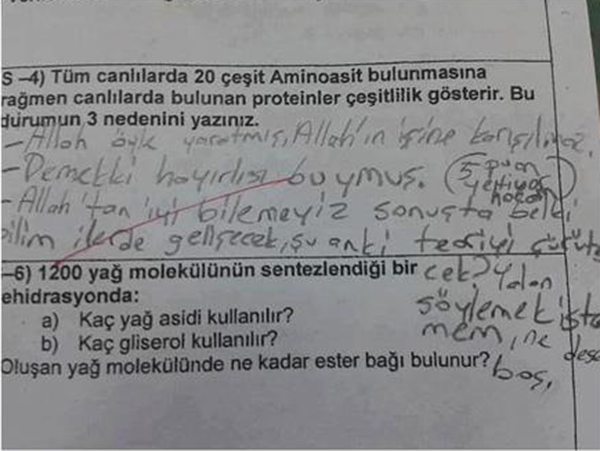 S-4) Tüm canlılarda 20 çeşit Aminoasit bulunmasına
rağmen canlılarda bulunan proteinler çeşitlilik gösterir. Bu
durumun 3 nedenini yazınız.
- Allah öyle yaratmış, Allah'ın işine karışılmaz.
- Demekki hayırlısı buymuş. (5 puan
yetiyor
hocam)
- Allah'tan iyi bilemeyiz sonuçta belki
bilim ilerde gelişecek, şu anki teoriyi çürüte
cek? Yalan
söylemek iste
mem, ne desem
boş.
-6) 1200 yağ molekülünün sentezlendiği bir
ehidrasyonda:
a) Kaç yağ asidi kullanılır?
b) Kaç gliserol kullanılır?
Oluşan yağ molekülünde ne kadar ester bağı bulunur?